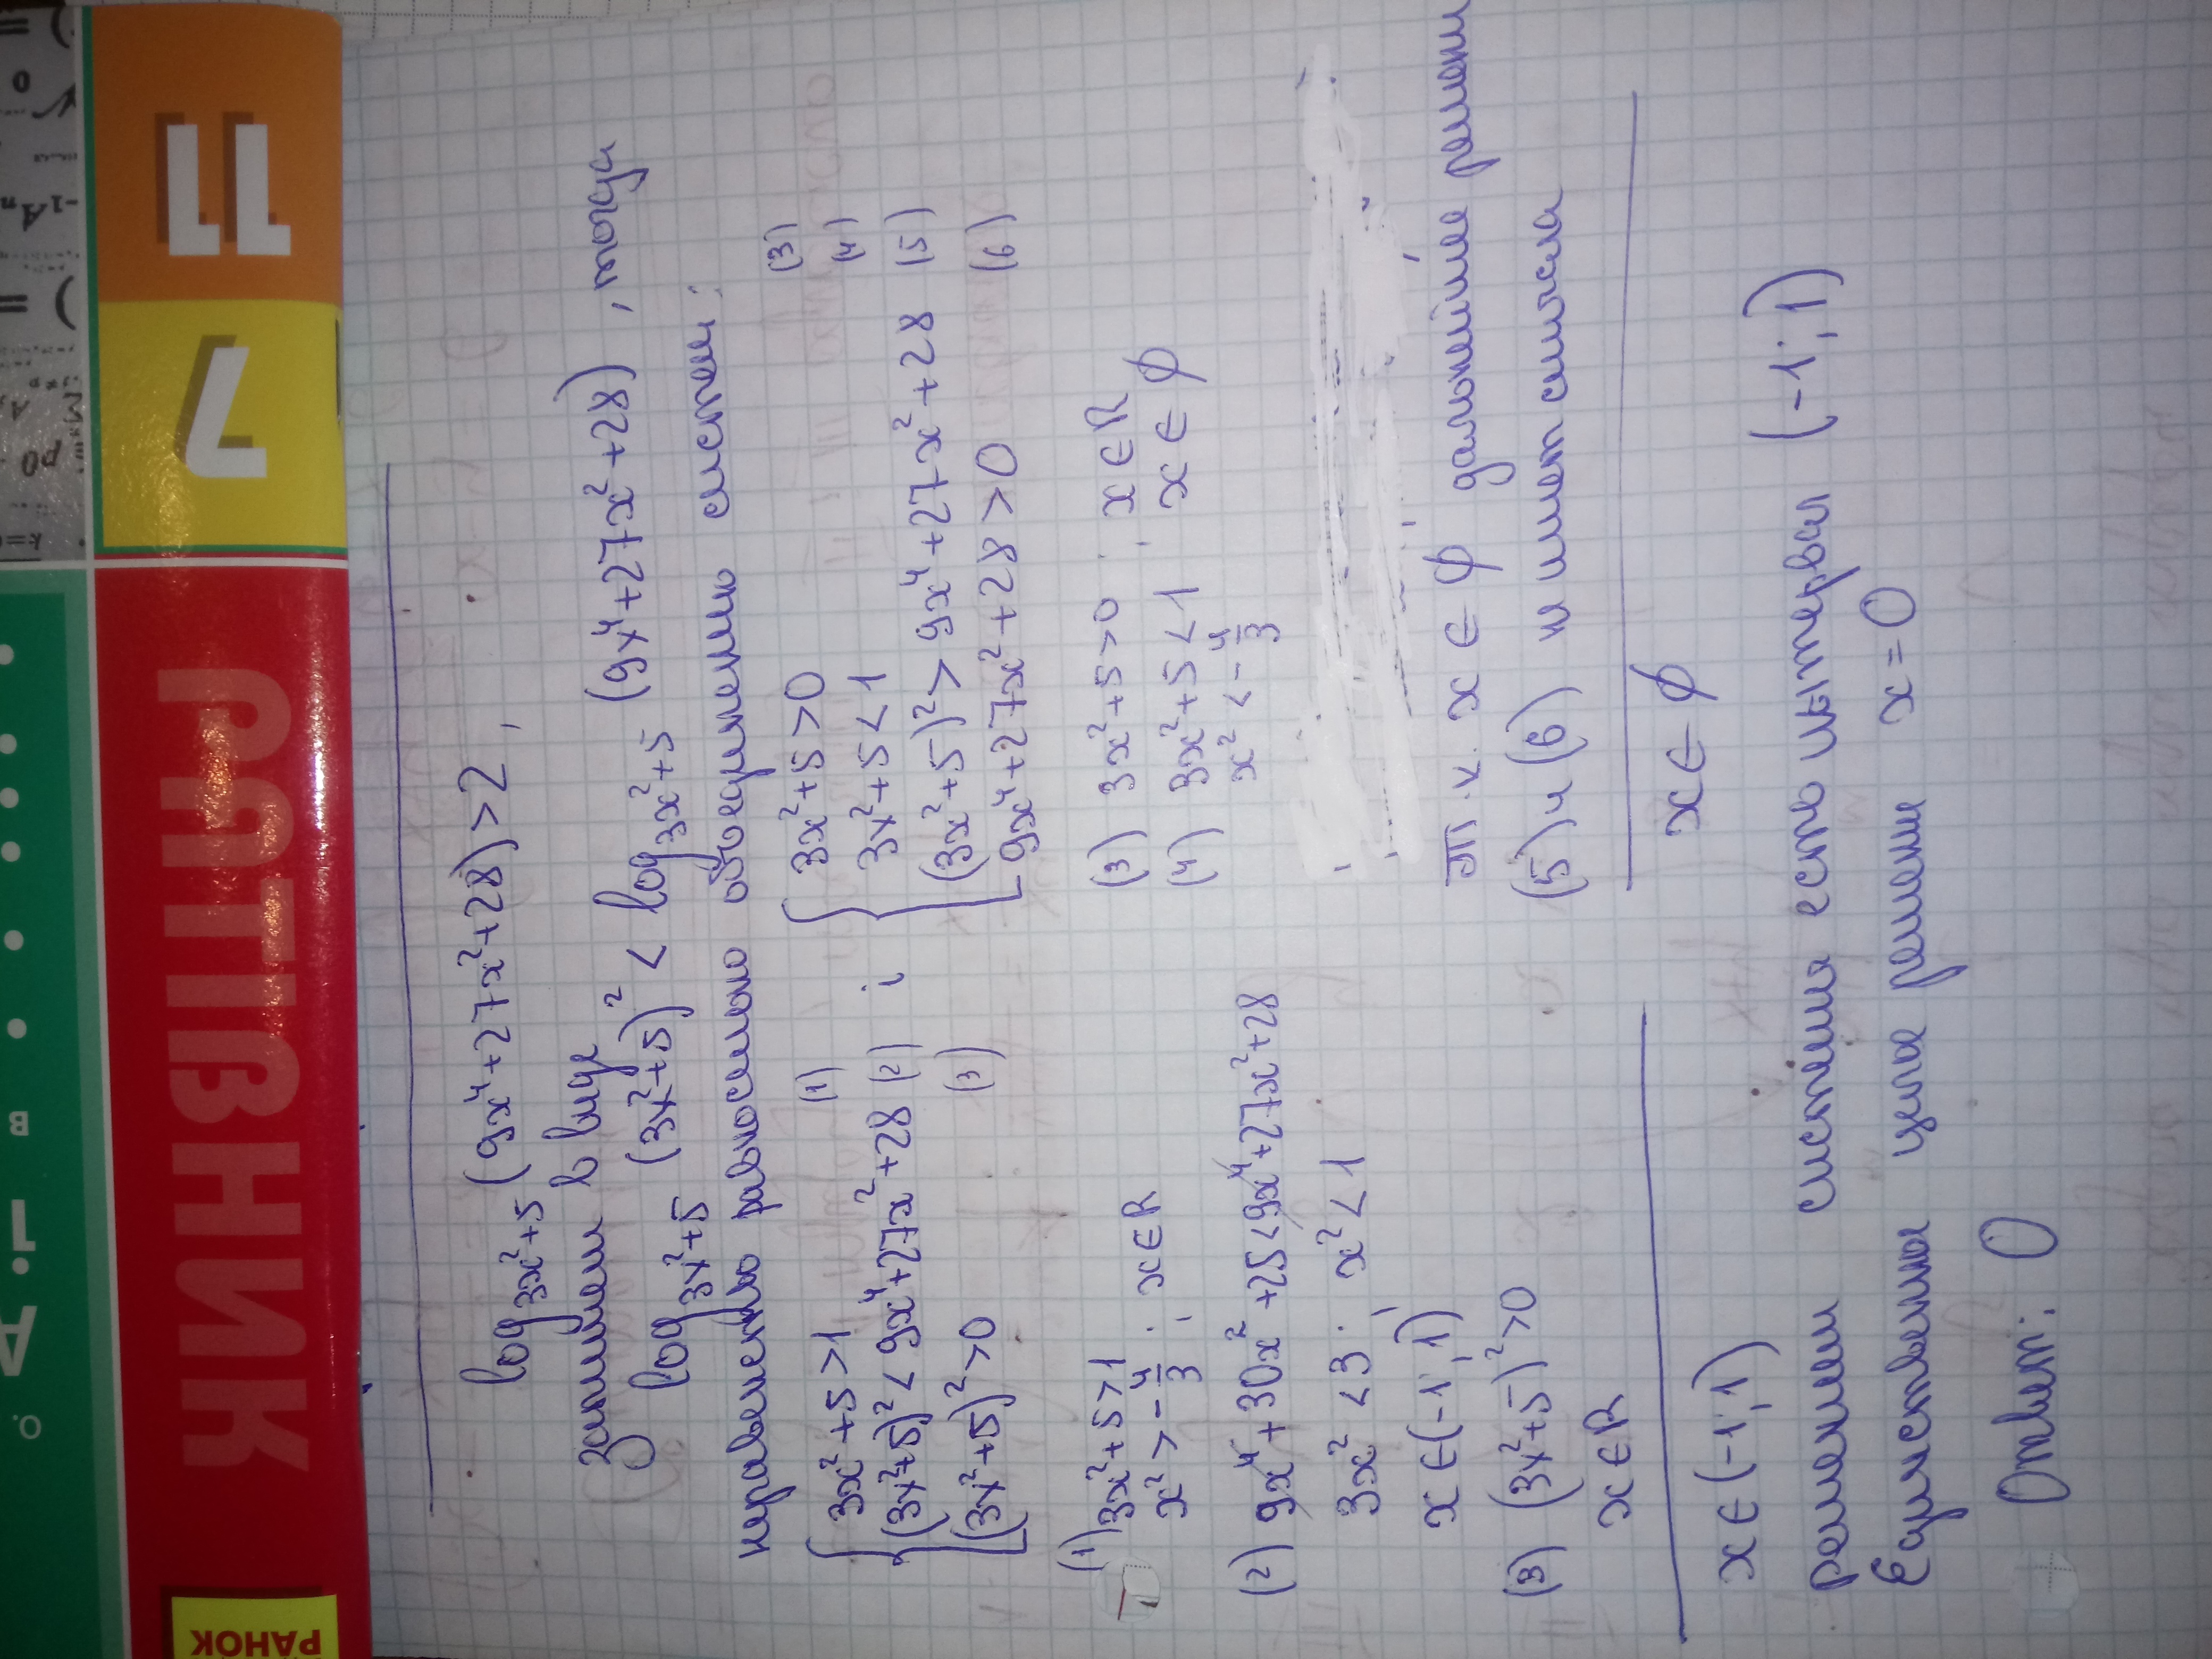 РАНОК
РАТІВНИК
7
11
log 3x²+5 (9x⁴+27x²+28)>2,
запишем в виде
log 3x²+5 (3x²+5)² < log 3x²+5 (9x⁴+27x²+28), тогда
неравенство равносильно объединению систем:
{ 3x²+5>1 (1)
(3x²+5)²<9x⁴+27x²+28 (2) ;
(3x²+5)²>0 (3)
{ 3x²+5>0 (3)
3x²+5<1 (4)
(3x²+5)²>9x⁴+27x²+28 (5)
9x⁴+27x²+28>0 (6)
(1) 3x²+5>1
x²>-4/3 ; x∈R
(2) 9x⁴+30x²+25<9x⁴+27x²+28
3x²<3; x²<1
x∈(-1;1)
(3) (3x²+5)²>0
x∈R
x∈(-1;1)
(3) 3x²+5>0 ; x∈R
(4) 3x²+5<1 ; x∈∅
x²<-4/3
т.к. x∈∅ дальнейшее решени
(5) и (6) не имеет смысла
x∈∅
решением системы есть интервал (-1;1)
Единственное целое решение x=0
Ответ: 0